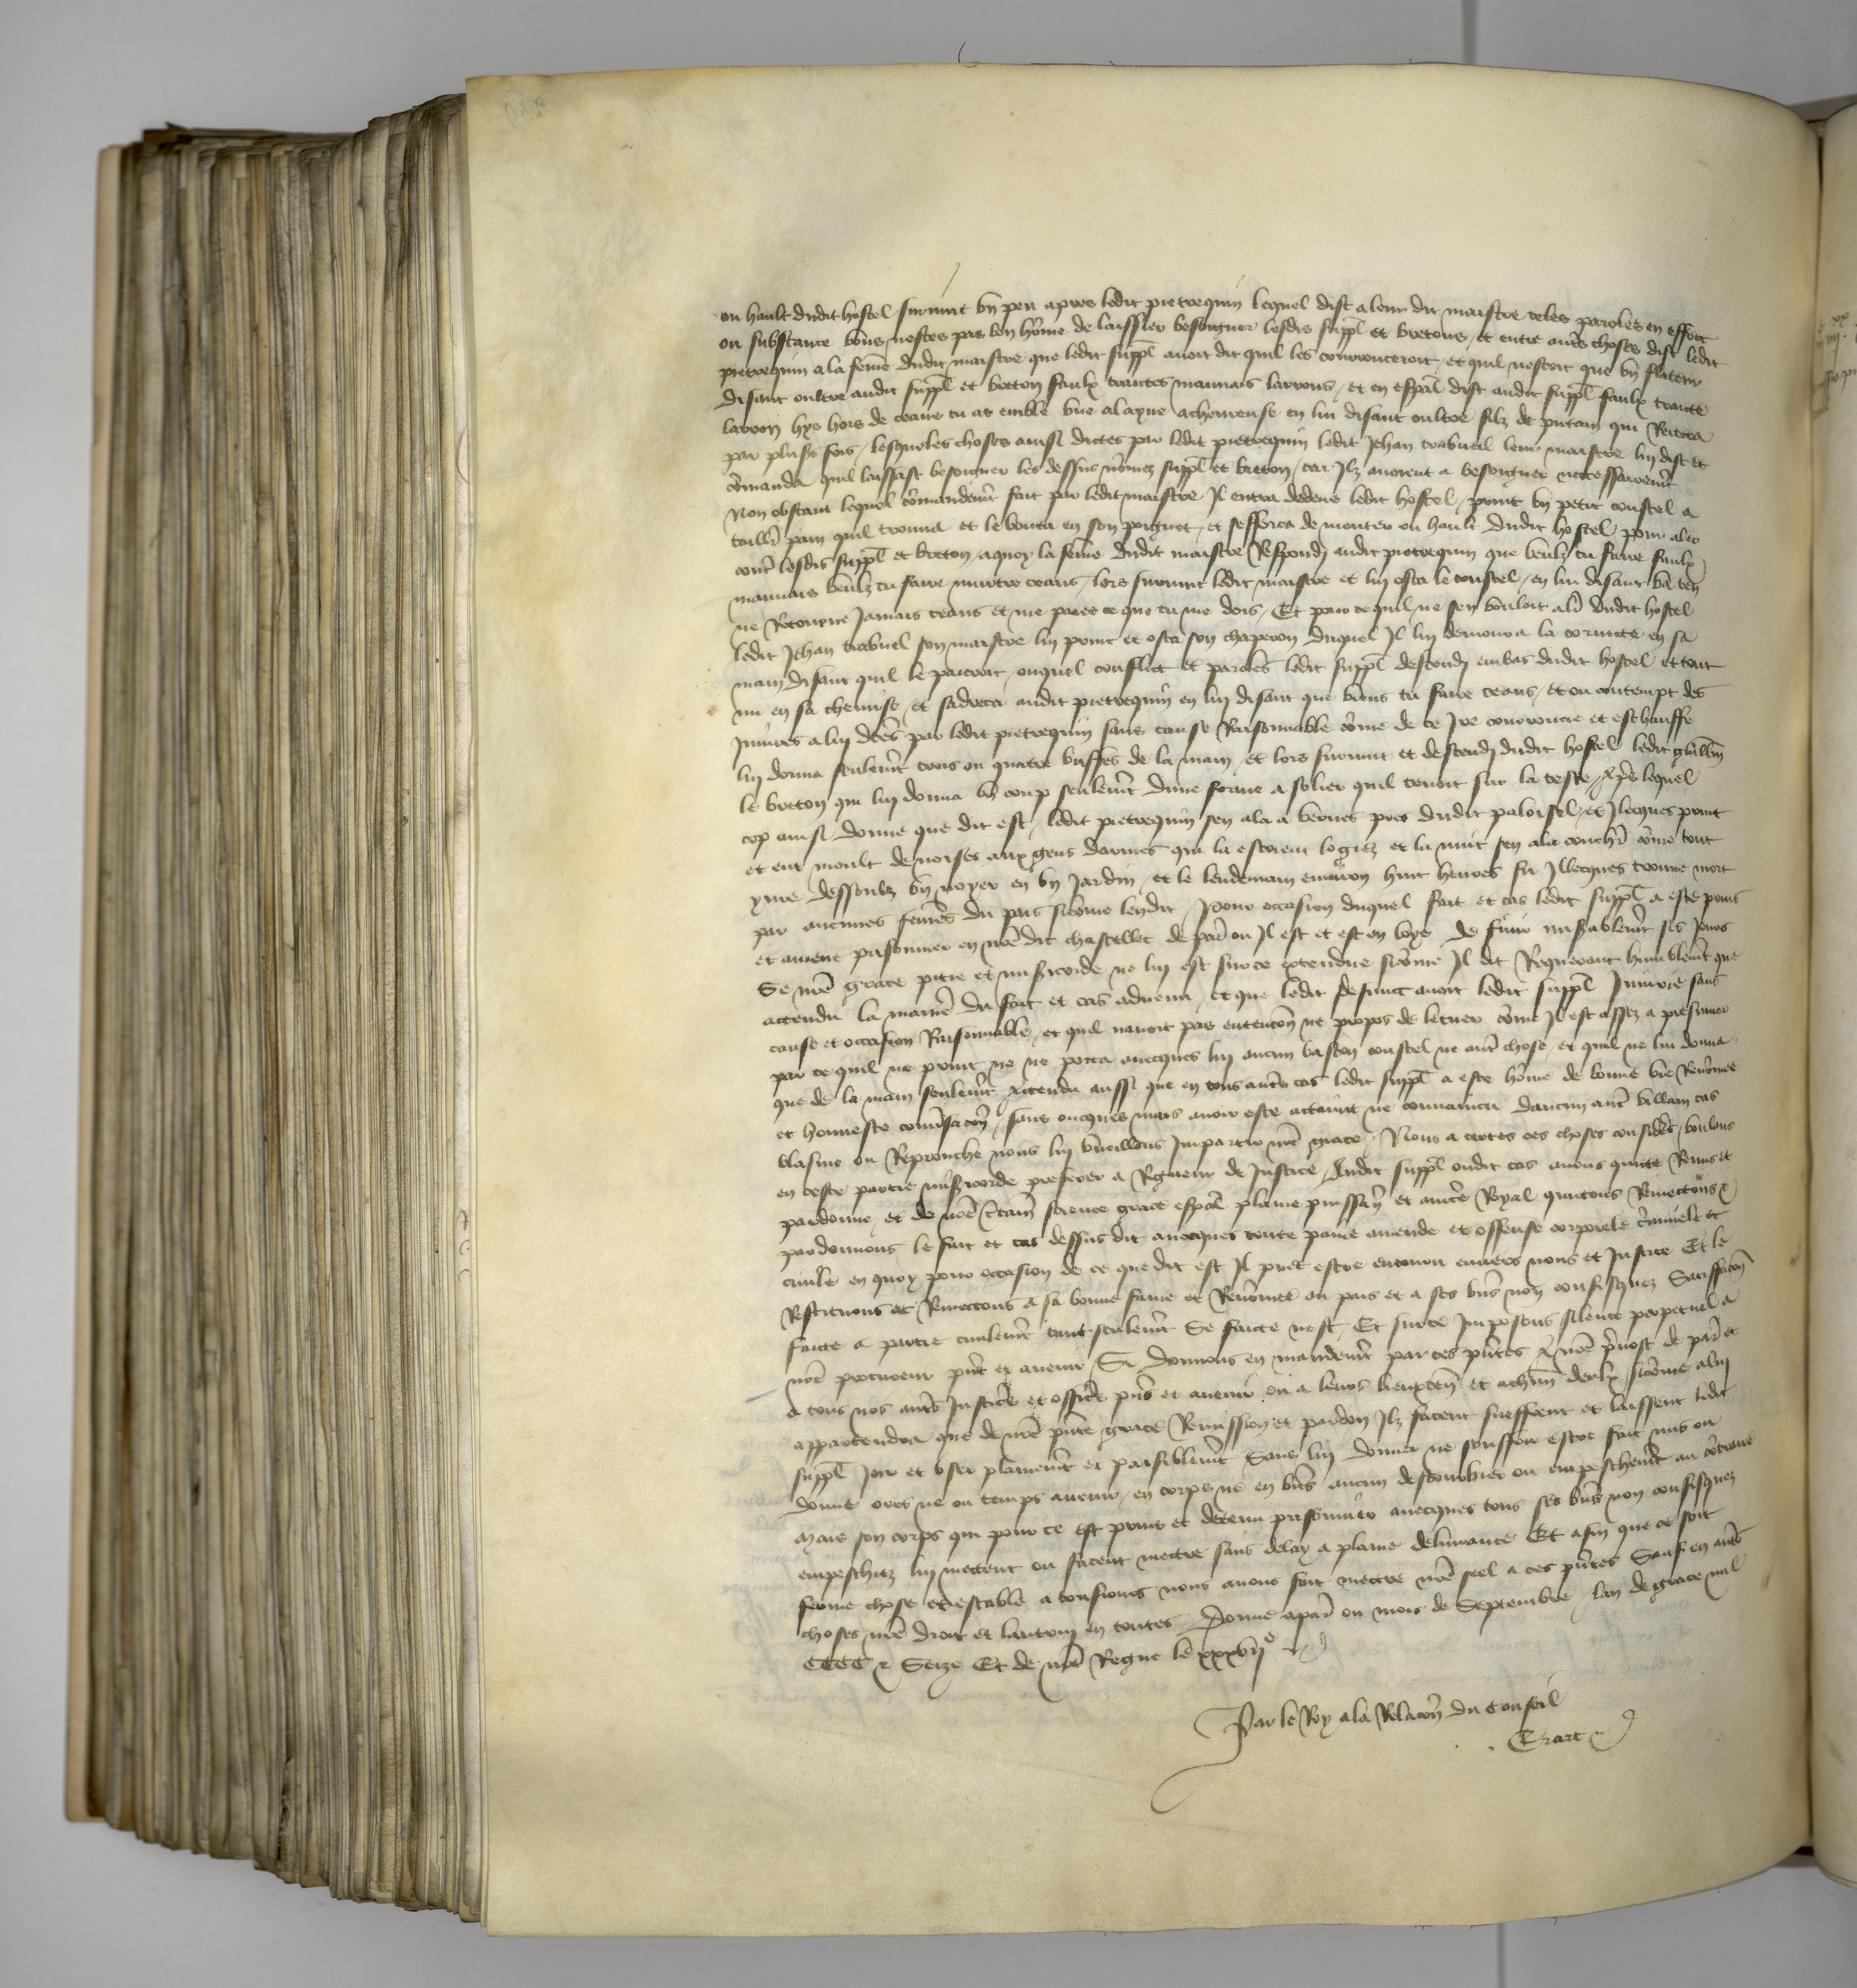 ou hault dudit hostel survint un peu apres ledit pietrequin lequel dist a leur dit maistre teles paroles en effect
ou substance vous nestes pas bon home de laissier besongner lesdis suppl et bretons et entre autres choses dist ledit
pietrequin a la feme dudit maistre que ledit suppl avoit dit quil les courrouceroit et quil nestoit que un flateur
disant oultre audit suppl et breton faulx truantes mauvais larrons et en espal dist audit suppl faulx truant
larron hys hors de ceans tu as emble une alayne en lui disant oultre filz de putain qui Reitera
par plus fois lesqueles choses ainsi dictes par ledit pietrequin ledit Jehan trabueil leur maistre luy dist et
comanda quil laissast besongner les dessus nomez suppl et breton car Ilz avoient a besongner necessairemt
Non obstant lequel comandemt fait par ledit maistre Il entra dedens ledit hostel print un petit coustel a
taillr pain quil trouva et le bouta en son poignet et sefforca de monter ou hault dudit hostel pour aler
contr lesdis suppl et breton aquoy la feme dudit maistre Respondi audit pietrequin que veulz tu faire faulx
mauvais veulz tu faire murtre ceans lors survint ledit maistre et luy osta le coustel en lui disant va ten
ne Retourne Jamais ceans et me paies ce que tu me dois Et pour ce quil ne sen vouloit alr dudit hostel
ledit Jehan trabueil son maistre luy print et osta son chaperon duquel Il luy demoura la cornete en sa
main disant quil le paieroit ouquel conflict et paroles ledit suppl descendi embas dudit hostel et tout
nu en sa chemise et sadreca audit pietrequin en luy disant que viens tu faire ceans et ou contempt des
Injures a luy dces par ledit pietrequin sans cause Raisonnable come de ce Ire courroucie et eschauffe
luy donna seulemt trois ou quatre buffes de la main et lors survint et descendi dudit hostel ledit guillm
le breton qui luy donna un coup seulemt dune forme a solier quil tenoit sur la teste Apres lequel
cop ainsi donne que dit est ledit pietrequin sen ala a vernes pres dudit paloisel et Ilecques print
et eut moult de noises aux gens darmes qui la estoient logiez et la nuit sen ala couchr come tout
yvre dessoubz un noyer en un Jardin et le lendemain environ huit heures fu Illecques trouve mort
par aucunes femes du pais sicome len dit Pour occasion duquel fait et cas ledit suppl a este prins
et amene prisonnier en nre dit chastellet de par ou Il est et est en voye de finir misablemt ses Jours
Se nre grace pitie et misericorde ne luy est sur ce extendue sicome Il dit Requerant humblemt que
attendu la manie du fait et cas advenu et que ledit defunct avoit ledit suppl Injurie sans
cause et occasion Raisonnable et quil navoit pas entencon ne propos de le tuer come Il est assez a presumer
par ce quil ne print ne ne porta avecques luy aucun baston coustel ne autr chose et quil ne lui donna
que de la main seulemt Attendu aussi que en tous autrs cas ledit suppl a este home de bonne vie Renomee
et honneste convsacon sans oncques mais avoir este actaint ne convaincu daucun autr villain cas
blasme ou Reprouche nous luy vueillons Impartir nre grace Nous a certes ces choses considres voulans
en ceste partie misicorde preferer a Rigueur de Justice Audit suppl oudit cas avons quicte Remis et
pardonne et de nre ctain science grace espal plaine puissan et auctte Royal quictons Remectons et
pardonnons le fait et cas dessus dit avecques toute paine amende et offense corporele cminele et
civile en quoy pour occasion de ce que dit est Il puet estre encouru envers nous et Justice Et le
Restituons et Remectons a sa bonne fame et Renomee au pais et a ses biens non confisquez Satisffacon
faicte a partie civilemt tant seulemt Se faicte nest Et sur ce Imposons silence perpetuel a
nre procureur pnt et avenir Si donnons en mandemt par ces pntes A nre prevost de par et
a tous nos autrs Justicrs et officrs pns et avenir ou a leurs lieuxten et achun deulx sicome a luy
appartendra que de nre pnte grace Remission et pardon Ilz facent sueffrent et laissent ledit
suppl Joir et user plainemt et paisiblemt Sans luy donner ne souffrir estre fait mis ou
donne ores ne ou temps avenir en corps ne en biens aucun destourbier ou empeschemt au contraire
Mais son corps qui pour ce est prins et detenu prisonnier avecques tous ses biens non confisquez
empeschiez luy mettent ou facent mectre sans delay a plaine delivrance Et afin que ce soit
ferme chose et estable a tousiours nous avons fait mectre nre seel a ces pntes Sauf en autrs
choses nre droit et lautruy en toutes Donne a par ou mois de Septembre lan de grace mil
CCCC et Seize Et de nre Regne le xxxvije
Par le Roy a la Relacon du Conseil
Erart